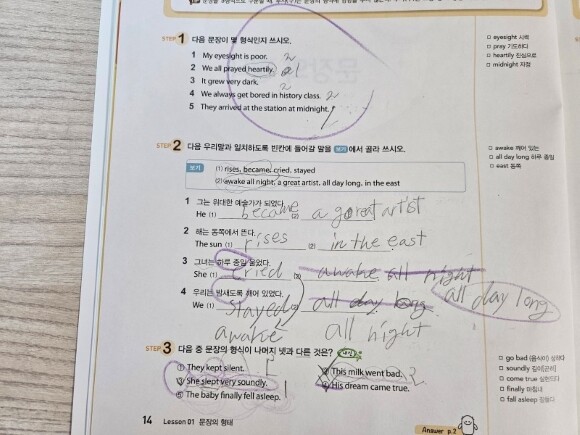 STEP 1 다음 문장이 몇 형식인지 쓰시오.
1 My eyesight is poor. 2
2 We all prayed heartily. 1
3 It grew very dark. 2
4 We always get bored in history class. 2
5 They arrived at the station at midnight. 1
eyesight 시력
pray 기도하다
heartily 진심으로
midnight 자정
STEP 2 다음 우리말과 일치하도록 빈칸에 들어갈 말을 보기 에서 골라 쓰시오.
보기 (1) rises, became, cried, stayed
(2) awake all night, a great artist, all day long, in the east
awake 깨어 있는
all day long 하루 종일
east 동쪽
1 그는 위대한 예술가가 되었다.
He (1) became (2) a great artist
2 해는 동쪽에서 뜬다.
The sun (1) rises (2) in the east
3 그녀는 하루 종일 울었다.
She (1) cried (2) awake all night
all day long
4 우리는 밤새도록 깨어 있었다.
We (1) stayed (2) all day long
awake all night
STEP 3 다음 중 문장의 형식이 나머지 넷과 다른 것은?
① They kept silent.
② This milk went bad. 2
③ She slept very soundly. 1
④ His dream came true.
⑤ The baby finally fell asleep.
go bad (음식이) 상하다
soundly 깊이[곤히]
come true 실현되다
finally 마침내
fall asleep 잠들다
14 Lesson 01 문장의 형태
Answer p.2